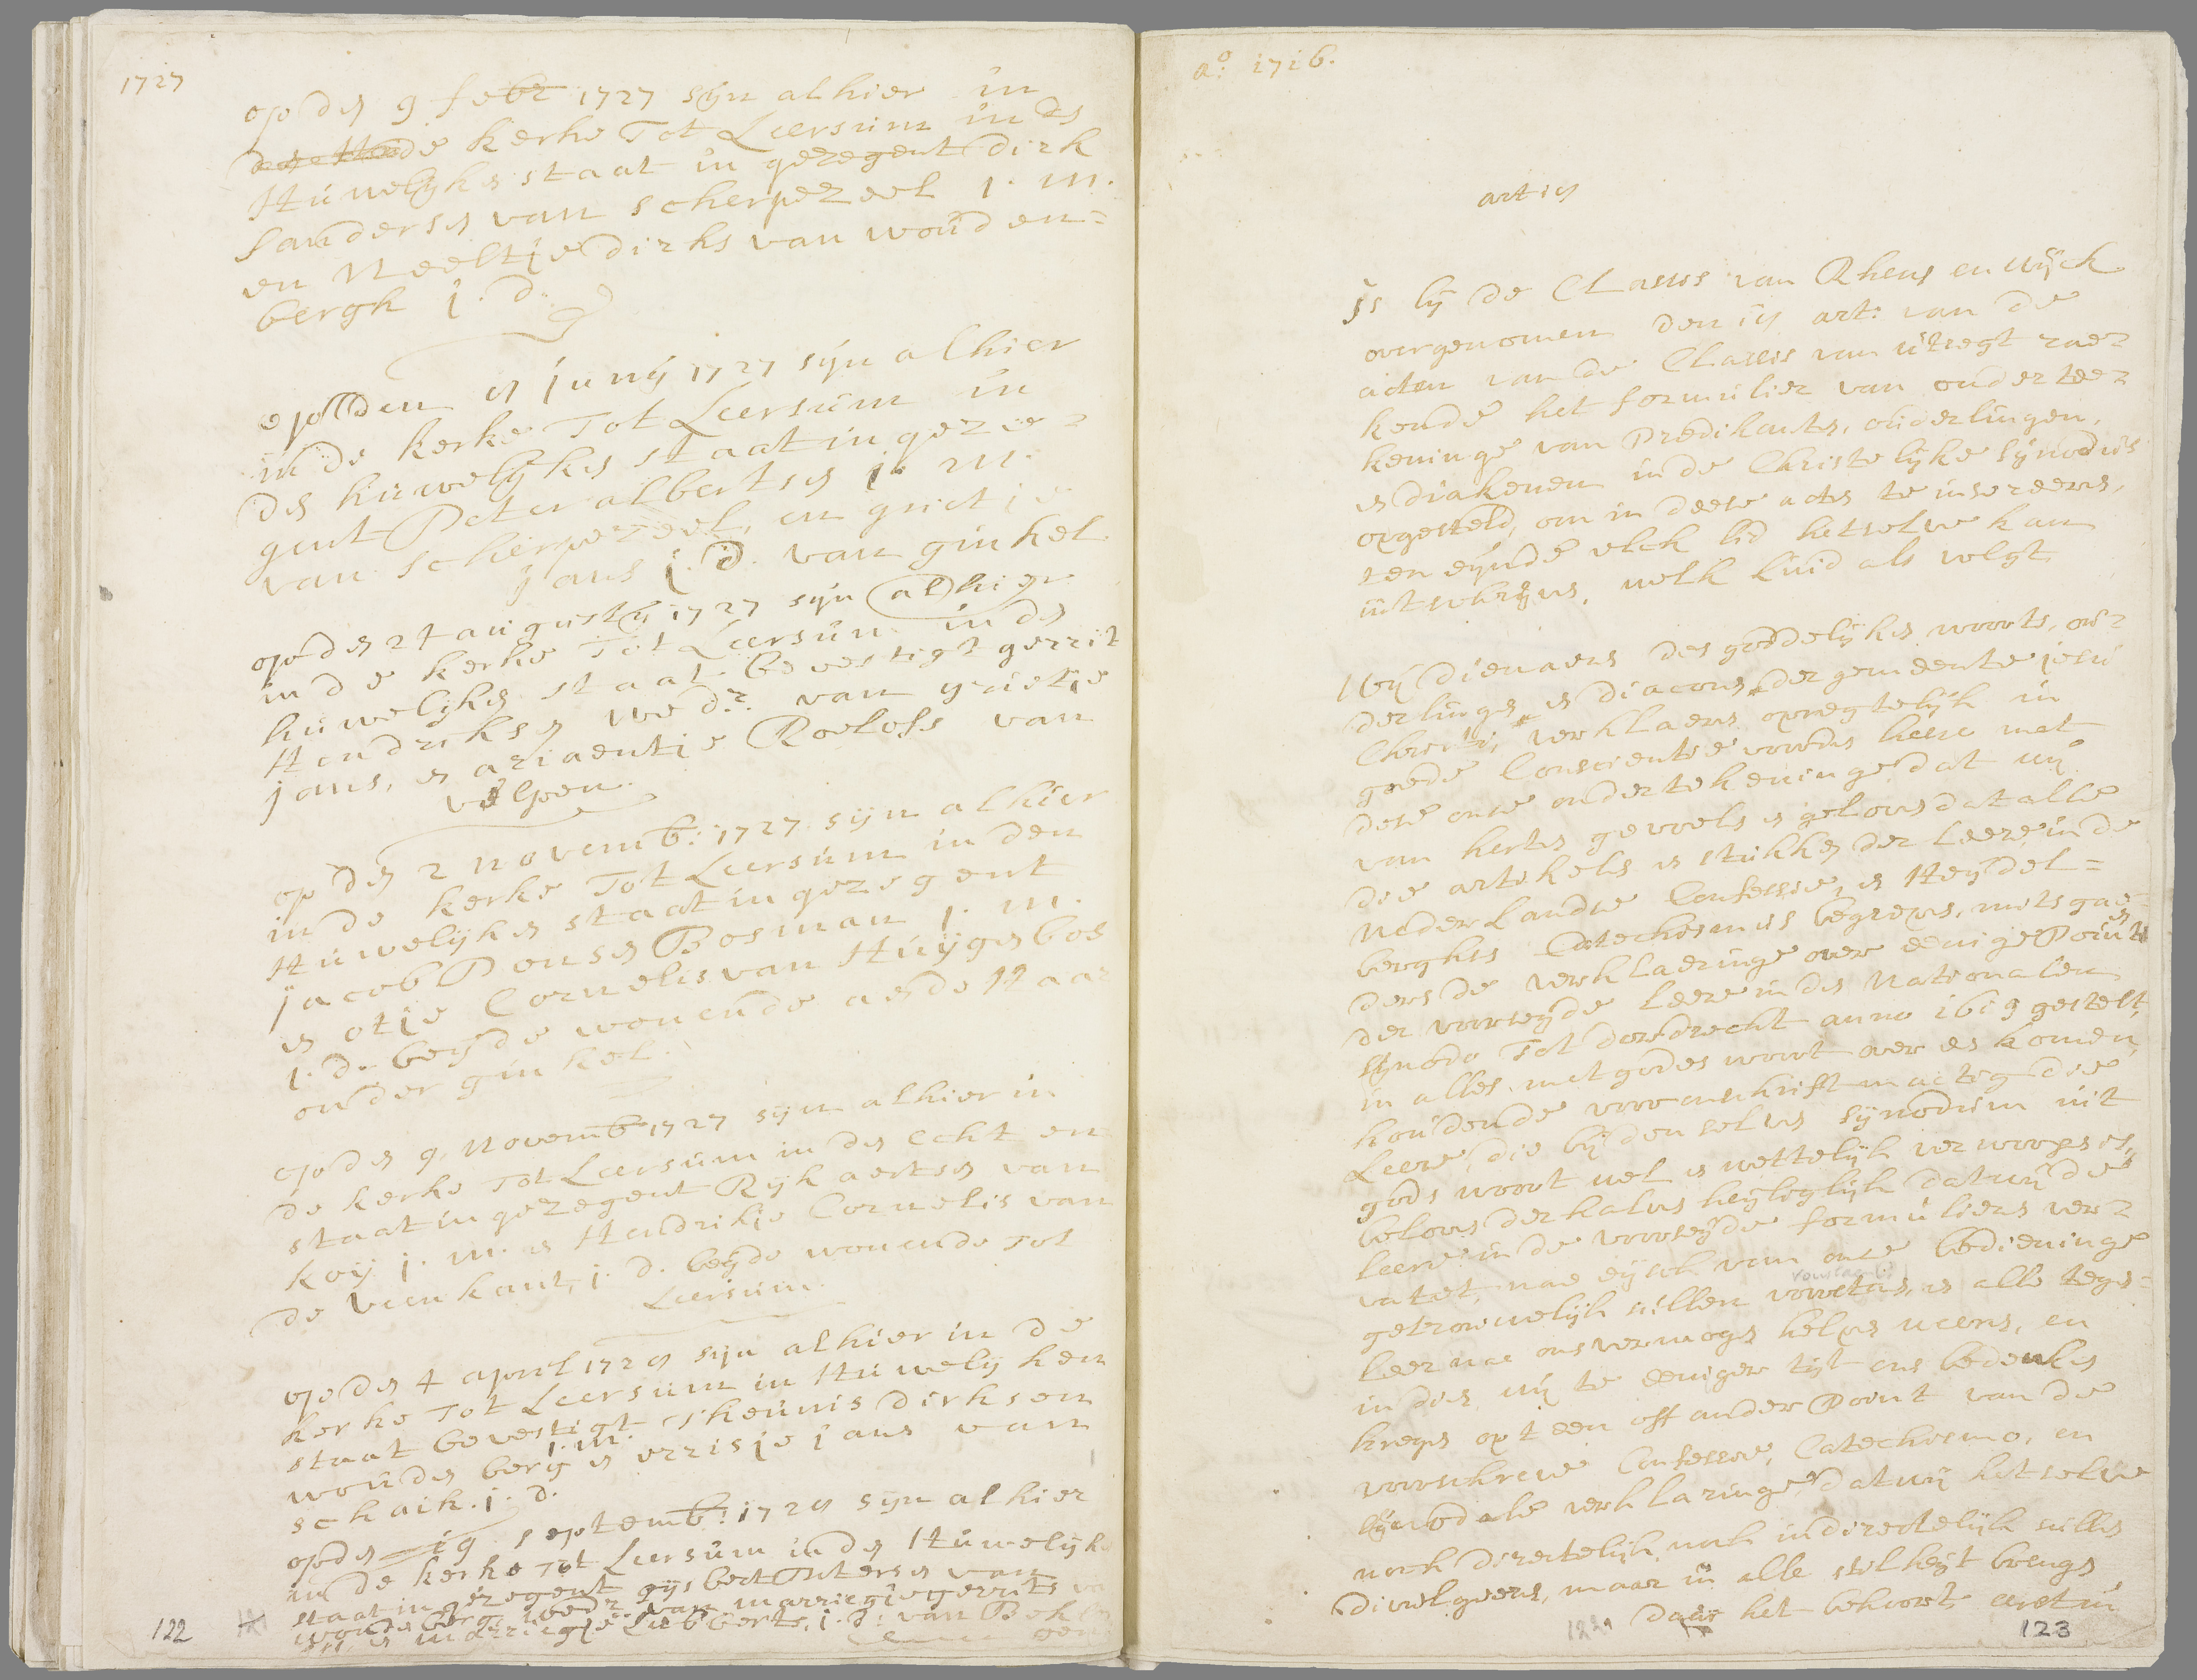 1727
op den 9 febr 1727 sijn alhier in
de kerke Tot Leersum in den
Huwelijken staat in gezegent Dirk
Sandersen van scherpezeel j. m.
en Neeltje Dirks van wouden=
bergh j. d.
op den 8 junij 1727 sijn alhier
in de kerke Tot Leersum in
den huwelijken staat in geze=
gent Peter albertsen j. m.
van scherpezeel, en grietje
jans j. d. van ginkel
op den 24 augustij 1727 sijn alhier
in de kerke Tot Leersum in den
huwelijken staat bevestigt gerrit
Hendriksen wedr. van grietje
jans, en ariaentje Roelofs van
velpen.
op den 2 novemb: 1727 sijn alhier
in de kerke Tot Leersum in den
Huwelijken staat in gezegent
jacob Ponsen Bosman j. m.
en otje Cornelis van Huijgenbos
j. d. beijde wonende aen de Haar
onder ginkel.
op den 9. Novemb 1727 sijn alhier in
de kerke Tot Leersum in den Echt en
staat in gezegent Rijk aertsen van
koij j. m. en Hendrikje Cornelis van
de veenkant, j. d. beijde wonende Tot
Leersum.
op den 4 april 1728 sijn alhier in de
kerke Tot Leersum in Huwelij ken
staat bevestigt Theunis dirksen
j. m.
wouden berg en errisje jans van
schaik. j. d.
op den 19 septemb: 1728 sijn alhier
in de kerke Tot Leersum in den Huwelijk
staat in gezegent gijsbert Petersen van
woudenberg wedr. van marrigje gerrits
en marrigje Lubberts, j. d. van
122
ao: 1716.
art 18
Is bij de Classis van Rhenen en wijck
overgenomen den 18 art: van de
acten van de Classis van utregt rae=
kende het formulier van ondertee=
keninge van Predikanten, ouderlingen,
en diakenen in de Christelijke Sijnodus
opgesteld, om in deese acten te insereeren,
ten eijnde elck lid hetselve kan
uitschrijven, welk luid als volgt
Wij dienaers des goddelijken woorts, ou=
derlingen en diacons der gemeente jesu
Christi, verklaeren opregtelijk in
goede Conscientie voor den heere met
dese onse ondertekeninge dat wij
van herten gevoelen en geloven dat alle
die artikels en stukken der leere in de
Nederlandse Confessie, en Heijdel=
berghsen Catechismus begrepen, mitsga=
ders de verklaeringe over eenige Pointen
der voorseijde leere in den Nationalen
Sijnodo Tot dordrecht anno 1619 gestelt,
in alles met godes woort over een komen,
houdende voor onschriftmaetig die
Leere, die bij den selven Sijnodum uit
gods woort wel en wettelijk verworpen is,
beloven derhalven heijliglijk dat wij de
leere in de voorseijde formulieren ver=
vatet, nae eijsch van onse bedieninge
getrouwelijk sullen voorstaen, en alle tegen=
leer nae ons vermogen helpen weeren, en
indien wij te eeniger tijt ons bedenken
kregen op t een off ander Point van de
voorschreve Confessie, Catechismo, en
Sijnodale verklaringe, dat wij hetselve
noch directelijk noch indirectelijk sullen
divulgeeren, maar in alle stilheijt brengen
daar het behoort, eerst in
123